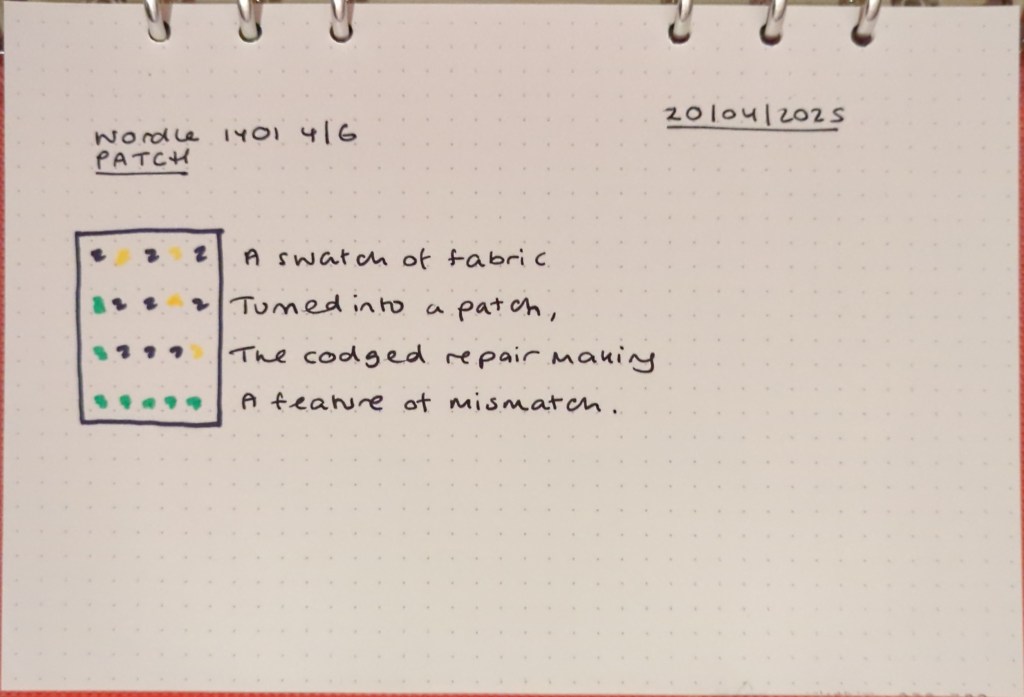 20/04/2025
Wordle 1401 4/6
PATCH
A swatch of fabric
Turned into a patch,
The codged repair making
A feature of mismatch.